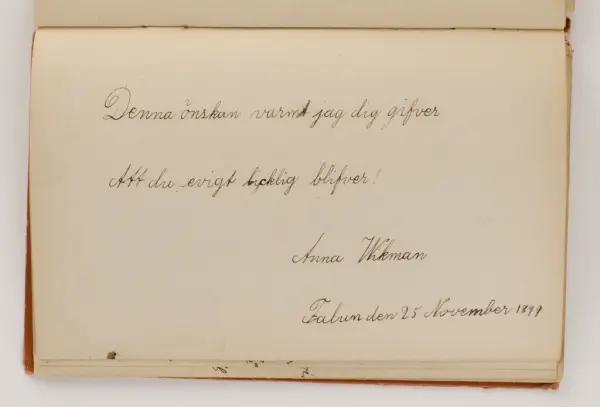 Denna önskan varmt jag dig gifver
Att du evigt lycklig blifver!
Anna Wikman
Falun den 25 November 1899